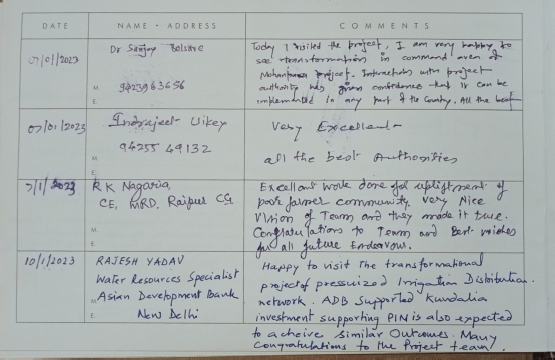 DATE NAME • ADDRESS COMMENTS
07/01/2023
Dr Sanjay Belsare
9423963656
M.
E.
Today I visited the project, I am very happy to
see transformation in command area of
Mohanpura project. Interaction with project
authority has given confidence that it can be
implemented in any part of the Country. All the best
07/01/2023
Indrajeet Uikey
94255 49132
M.
E.
Very Excellent
all the best Authorities
7/1/2023
R K Nagaria,
CE, MRD, Raipur CG
M.
E.
Excellent work done for upliftment of
poor farmer community. Very Nice
Vision of Team and they made it true.
Congratulations to Team and Best wishes
for all future Endeavour.
10/1/2023
RAJESH YADAV
Water Resources Specialist
M. Asian Development Bank
E. New Delhi
Happy to visit the transformational
project of pressurized Irrigation Distribution
network. ADB supported Kundalia
investment supporting PIN is also expected
to acheive similar Outcomes. Many
Congratulations to the Project team!